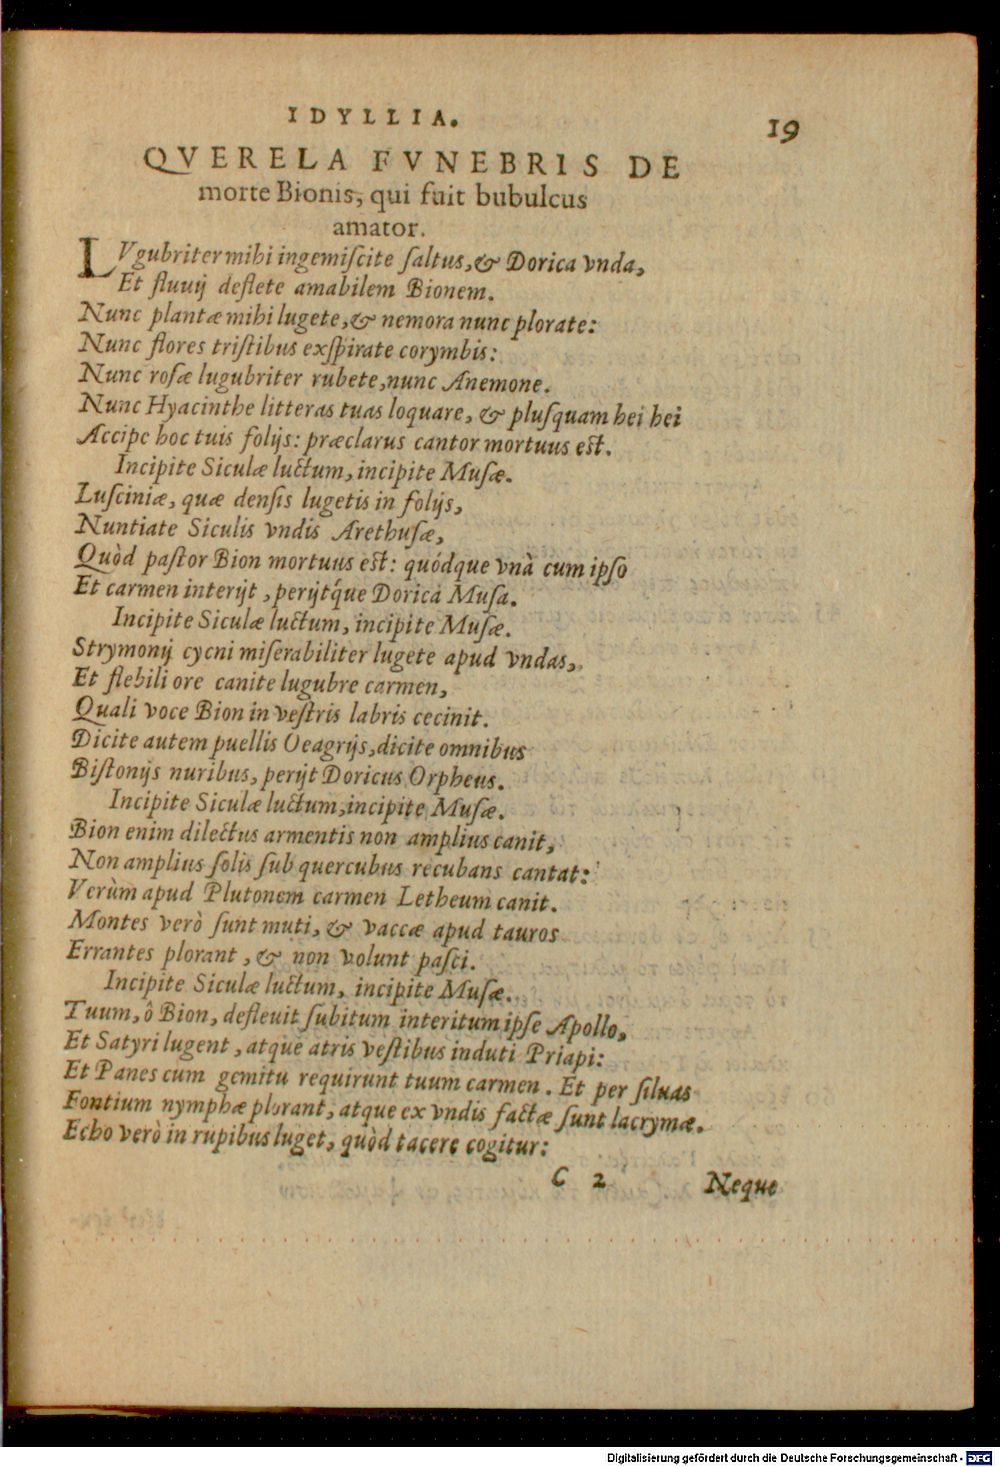 IDYLLIA.
19
QVERELA FVNEBRIS DE
morte Bionis, qui fuit bubulcus
amator.
LVgubriter mihi ingemiſcite ſaltus, & Dorica vnda,
Et fluuij deflete amabilem Bionem.
Nunc plantæ mihi lugete, & nemora nunc plorate:
Nunc flores triſtibus exſpirate corymbis:
Nunc roſæ lugubriter rubete, nunc Anemone.
Nunc Hyacinthe litteras tuas loquare, & pluſquam hei hei
Accipe hoc tuis folijs: præclarus cantor mortuus est.
Incipite Siculæ luctum, incipite Muſæ.
Luſciniæ, quæ denſis lugetis in folijs,
Nuntiate Siculis vndis Arethuſæ,
Quòd paſtor Bion mortuus est: quódque vnà cum ipſo
Et carmen interijt, perijtq́ue Dorica Muſa.
Incipite Siculæ luctum, incipite Muſæ.
Strymonij cycni miſerabiliter lugete apud vndas,
Et flebili ore canite lugubre carmen,
Quali voce Bion in veſtris labris cecinit.
Dicite autem puellis Oeagrijs, dicite omnibus
Biſtonijs nuribus, perijt Doricus Orpheus.
Incipite Siculæ luctum, incipite Muſæ.
Bion enim dilectus armentis non amplius canit,
Non amplius ſolis ſub quercubus recubans cantat:
Verùm apud Plutonem carmen Letheum canit.
Montes verò ſunt muti, & vaccæ apud tauros
Errantes plorant, & non volunt paſci.
Incipite Siculæ luctum, incipite Muſæ.
Tuum, ô Bion, defleuit ſubitum interitum ipſe Apollo,
Et Satyri lugent, atque atris veſtibus induti Priapi:
Et Panes cum gemitu requirunt tuum carmen. Et per ſiluas
Fontium nymphæ plorant, atque ex vndis factæ ſunt lacrymæ.
Echo verò in rupibus luget, quòd tacere cogitur:
C 2
Neque
Digitalisierung gefördert durch die Deutsche Forschungsgemeinschaft - DFG